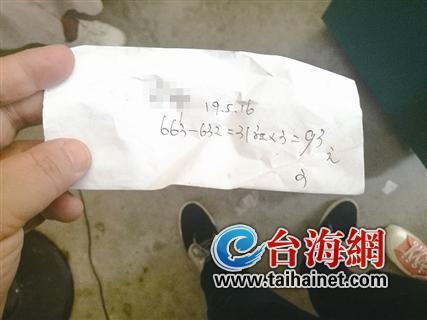 19.5.16
663-632=31砘×3=93元
台海網
www.taihainet.com